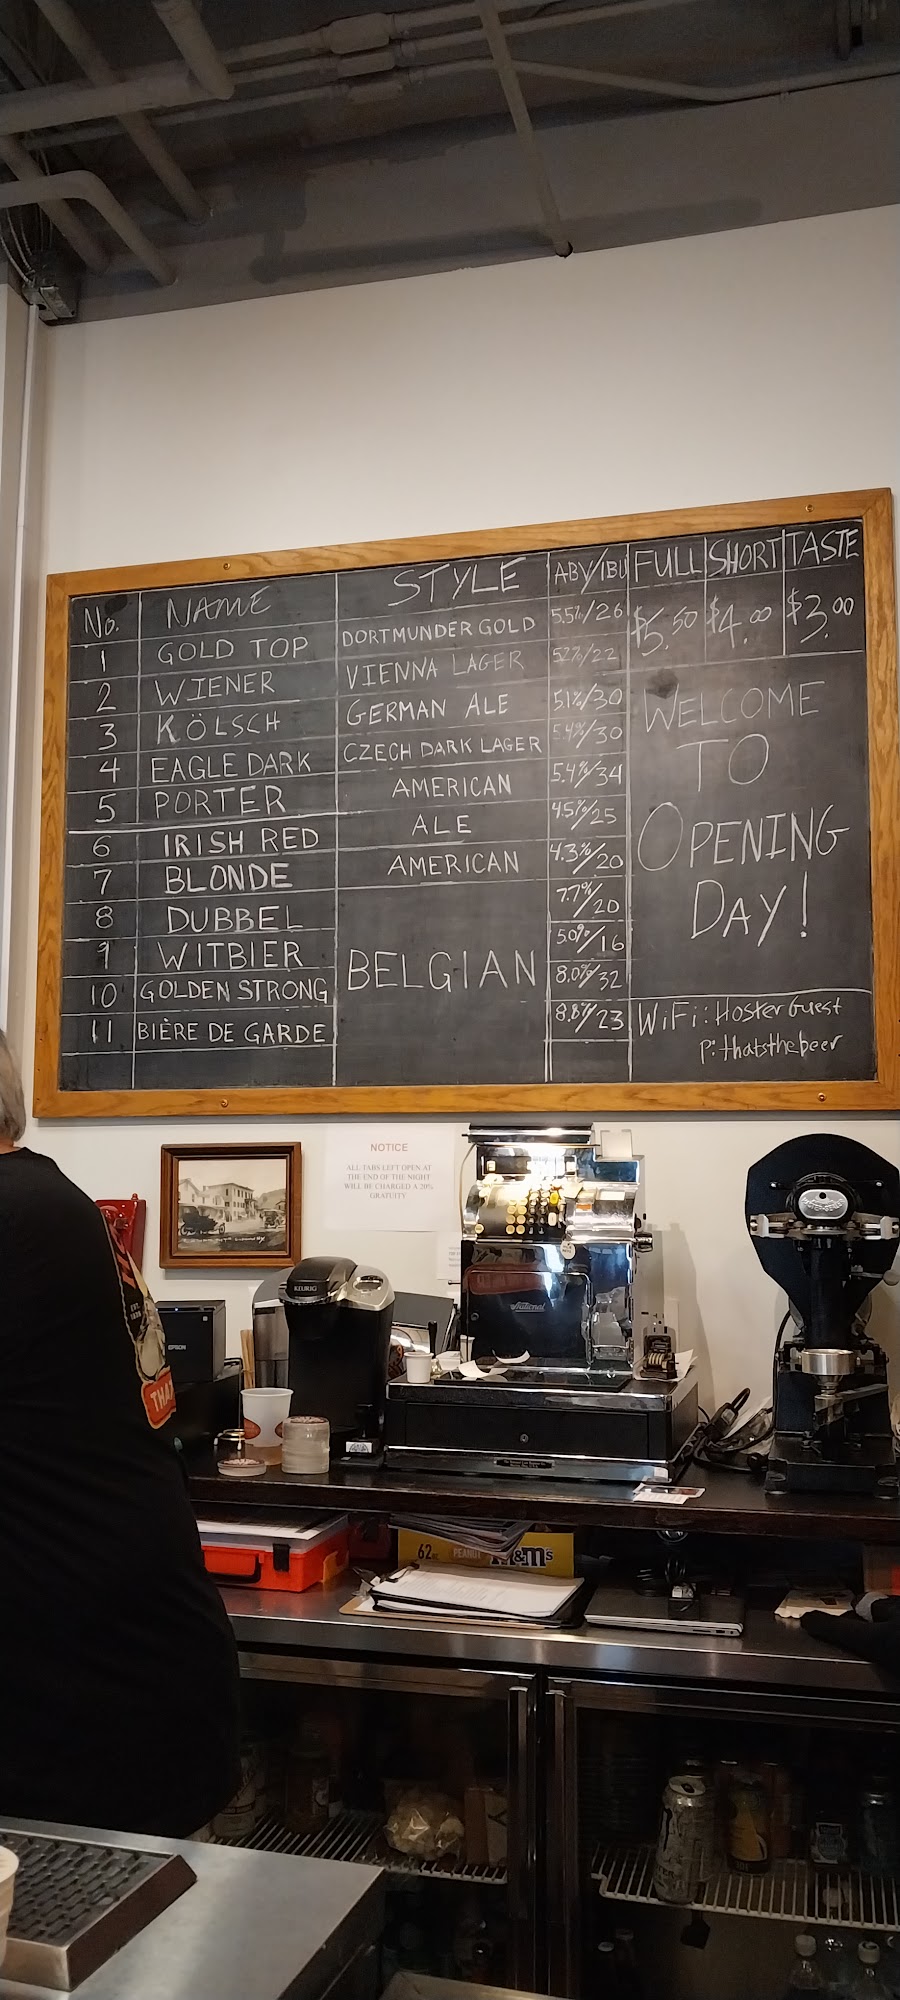 No. NAME STYLE ABV/IBU FULL SHORT TASTE
1 GOLD TOP DORTMUNDER GOLD 5.5%/26 $5.50 $4.00 $3.00
2 WIENER VIENNA LAGER 5.2%/22
3 KÖLSCH GERMAN ALE 5.1%/30
4 EAGLE DARK CZECH DARK LAGER 5.4%/30
5 PORTER AMERICAN 5.4%/34
6 IRISH RED ALE 4.5%/25
7 BLONDE AMERICAN 4.3%/20
8 DUBBEL 7.7%/20
9 WITBIER BELGIAN 5.0%/16
10 GOLDEN STRONG 8.0%/32
11 BIÈRE DE GARDE 8.8%/23
WELCOME
TO
OPENING
DAY!
WiFi: Hoster Guest
P: thatsthebeer
NOTICE
ALL TABS LEFT OPEN AT
THE END OF THE NIGHT
WILL BE CHARGED A 20%
GRATUITY
KEURIG
EPSON
National
THA
62 PEANUT M&M's